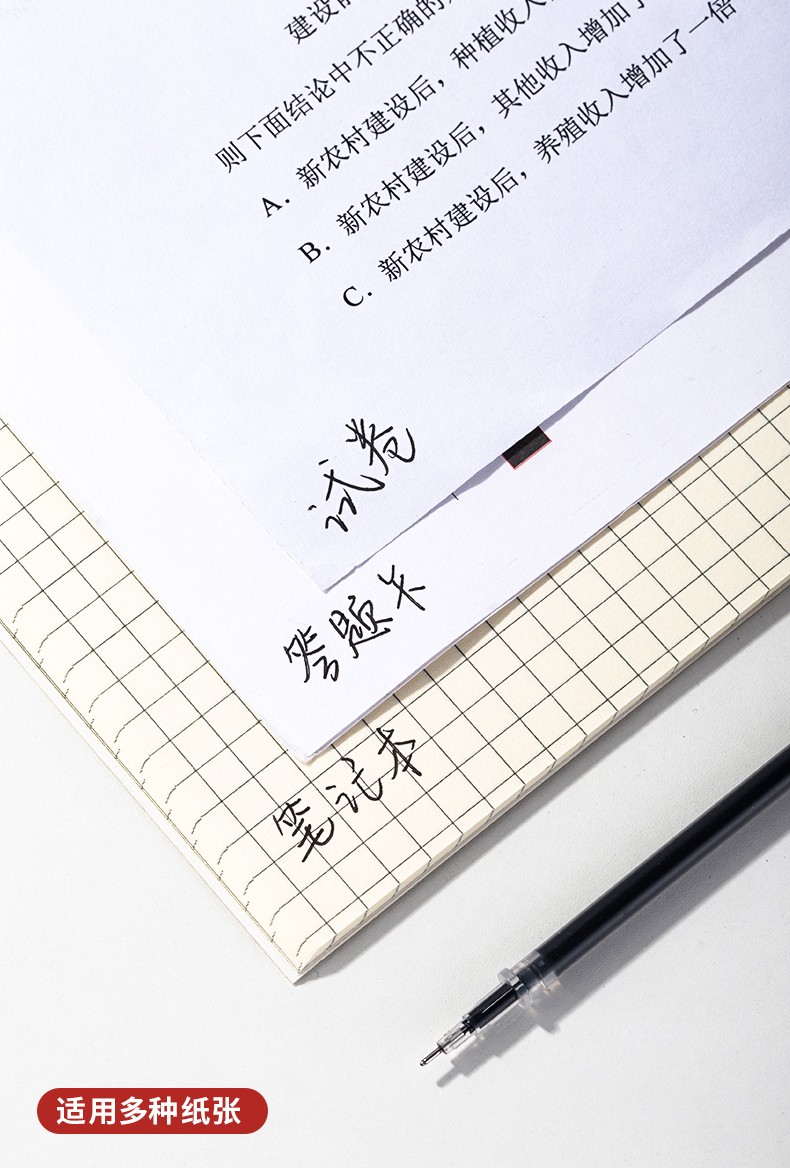 建设前
则下面结论中不正确的是
A. 新农村建设后，种植收入
B. 新农村建设后，其他收入增加了
C. 新农村建设后，养殖收入增加了一倍
试卷
答题卡
笔记本
适用多种纸张